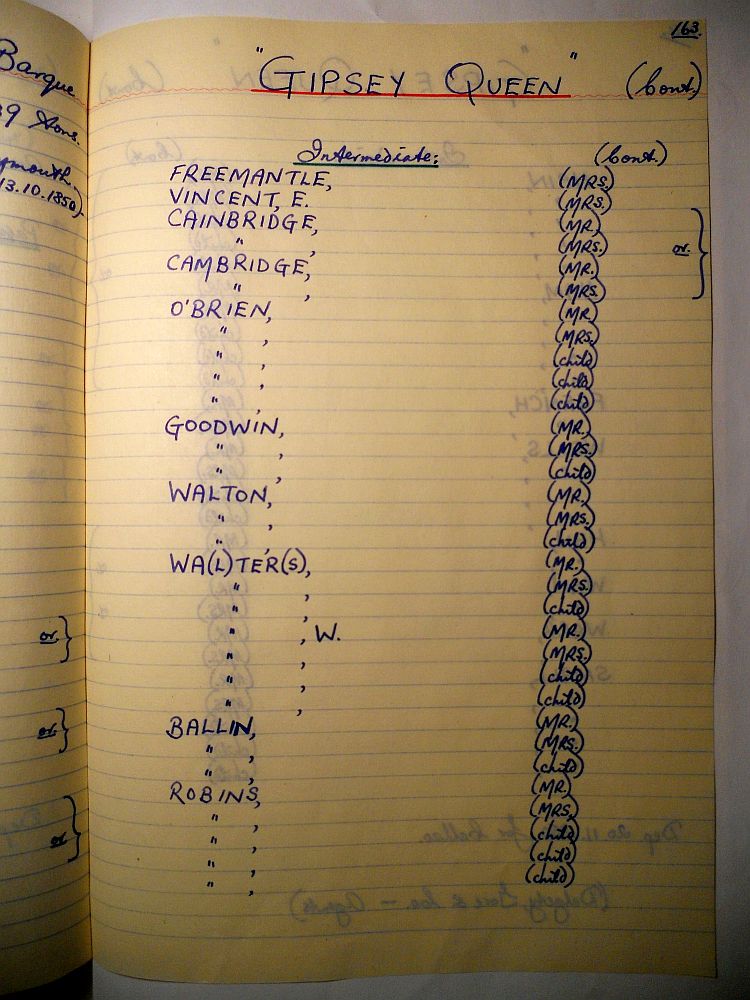 163.
"GIPSEY QUEEN" (Cont.)
Intermediate: (Cont.)
FREEMANTLE, (MRS.)
VINCENT, E. (MRS.)
CAINBRIDGE, (MR.)
" , (MRS.) or.
CAMBRIDGE, (MR.)
" , (MRS.)
O'BRIEN, (MR.)
" , (MRS.)
" , (child)
" , (child)
" , (child)
GOODWIN, (MR.)
" , (MRS.)
" , (child)
WALTON, (MR.)
" , (MRS.)
" , (child)
WA(L)TER(S), (MR.)
" , (MRS.)
" , (child)
" , W. (MR.)
" , (MRS.)
" , (child)
" , (child)
BALLIN, (MR.)
" , (MRS.)
" , (child)
ROBINS, (MR.)
" , (MRS.)
" , (child)
" , (child)
" , (child)
Barque
39 tons.
13.10.1850).
or.
or.
or.